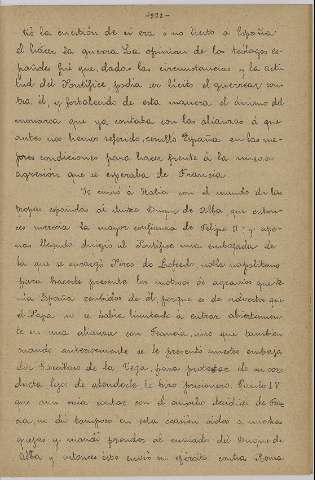 -1991-
tió la cuestión de si era ó no lícito á España
el hacer la guerra. La opinion de los teólogos es-
pañoles fué que, dadas las circunstancias y la acti-
tud del Pontífice podia ser lícito el guerrear con-
tra él, y fortaleciendo de esta manera el ánimo del
monarca que ya contaba con las alianzas á que
antes nos hemos referido, resulta España en las me-
jores condiciones para hacer frente á la nueva
agresión que se esperaba de Francia.
Se envió á Italia con el mando de las
tropas españolas al ilustre Duque de Alba que enton-
ces merecia la mayor confianza de Felipe II y ape-
nas llegado dirigió al Pontífice una embajada de
la que se encargó Pirro de noble napolitano
para hacerle presente los motivos de agravios que te-
nia España contados de él porque es de advertir que
el Papa no se habia limitado á entrar abiertamen-
te en una alianza con Francia, sino que tambien
cuando anteriormente se le presentó nuestro embaja-
dor Garcilaso de la Vega, para protestar de su con-
ducta lejos de atenderle le hizo prisionero. Paulo IV
que aun creia contar con el auxilio decidido de Fran-
cia, no dió tampoco en esta ocasión oidos á nuestras
quejas y mandó prender al enviado del Duque de
Alba y entonces éste envió su ejército contra Roma